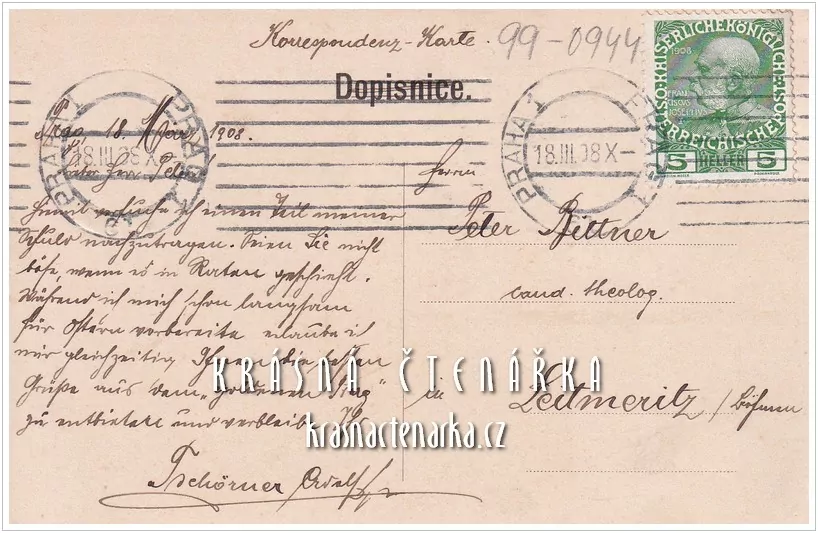 Korrespondenz-Karte.
99-0944
Dopisnice.
KAISERLICHE KÖNIGLICHE
ÖSTERREICHISCHE POST
1908
5 HELLER 5
PRAHA 1 PRAG 1
18.III.08 X-
PRAHA 1 PRAG 1
18.III.08 X-
Prag, 18. März 1908.
Herr
Hiermit versuche ich einen Teil meiner
Schuld nachzutragen. Seien Sie nicht
böse, wenn es in Raten geschieht.
Während ich mich schon langsam
für Ostern vorbereite erlaube ich
mir gleichzeitig Ihnen die besten
Grüße aus dem „goldenen Prag"
zu entbieten und verbleibe Ihr
Tschörner Adolf
Herrn
Peter Bittner
cand. theolog.
in
Leitmeritz / Böhmen
KRÁSNÁ ČTENÁŘKA
krasnactenarka.cz